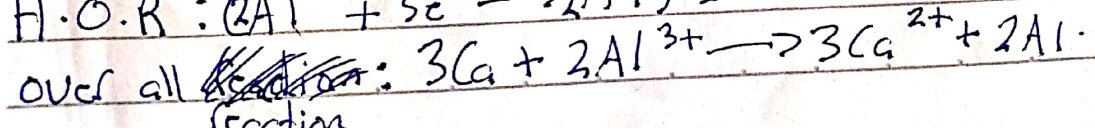 H.O.R : (2Al + 3e
over all : 3Ca + 2Al³⁺ —> 3Ca²⁺ + 2Al.
reaction